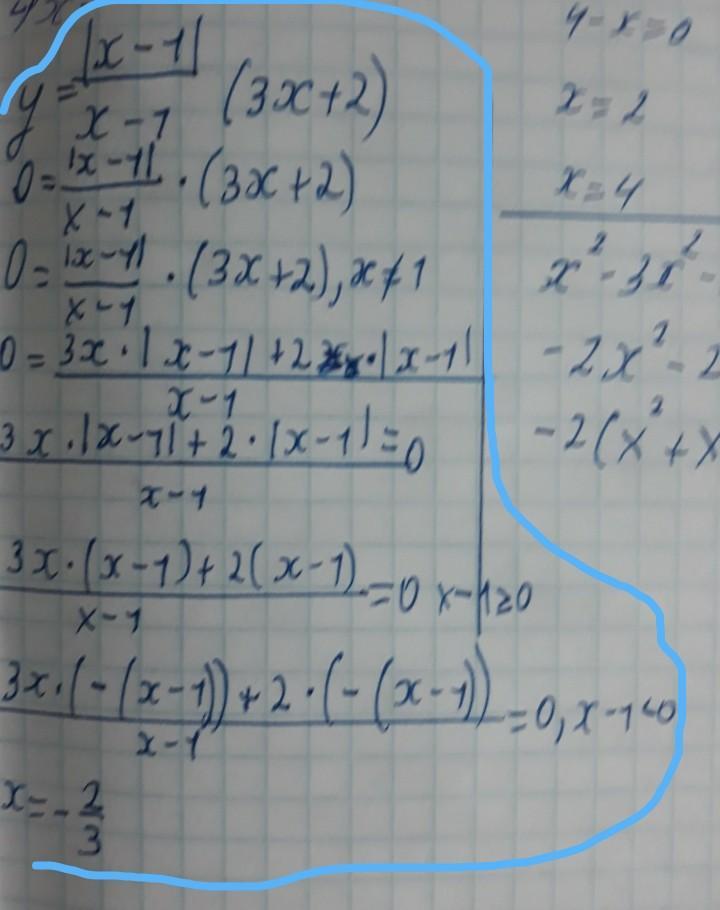 y = |x-1| / x-1 (3x+2)
0 = |x-1| / x-1 · (3x+2)
0 = |x-1| / x-1 · (3x+2), x≠1
0 = 3x·|x-1|+2·|x-1| / x-1
3x·|x-1|+2·|x-1| / x-1 = 0
3x·(x-1)+2(x-1) / x-1 = 0 x-1≥0
3x·(-(x-1))+2·(-(x-1)) / x-1 = 0, x-1<0
x = -2/3
4-x=0
x=2
x=4
x²-3x²-
-2x²-2
-2(x²+x